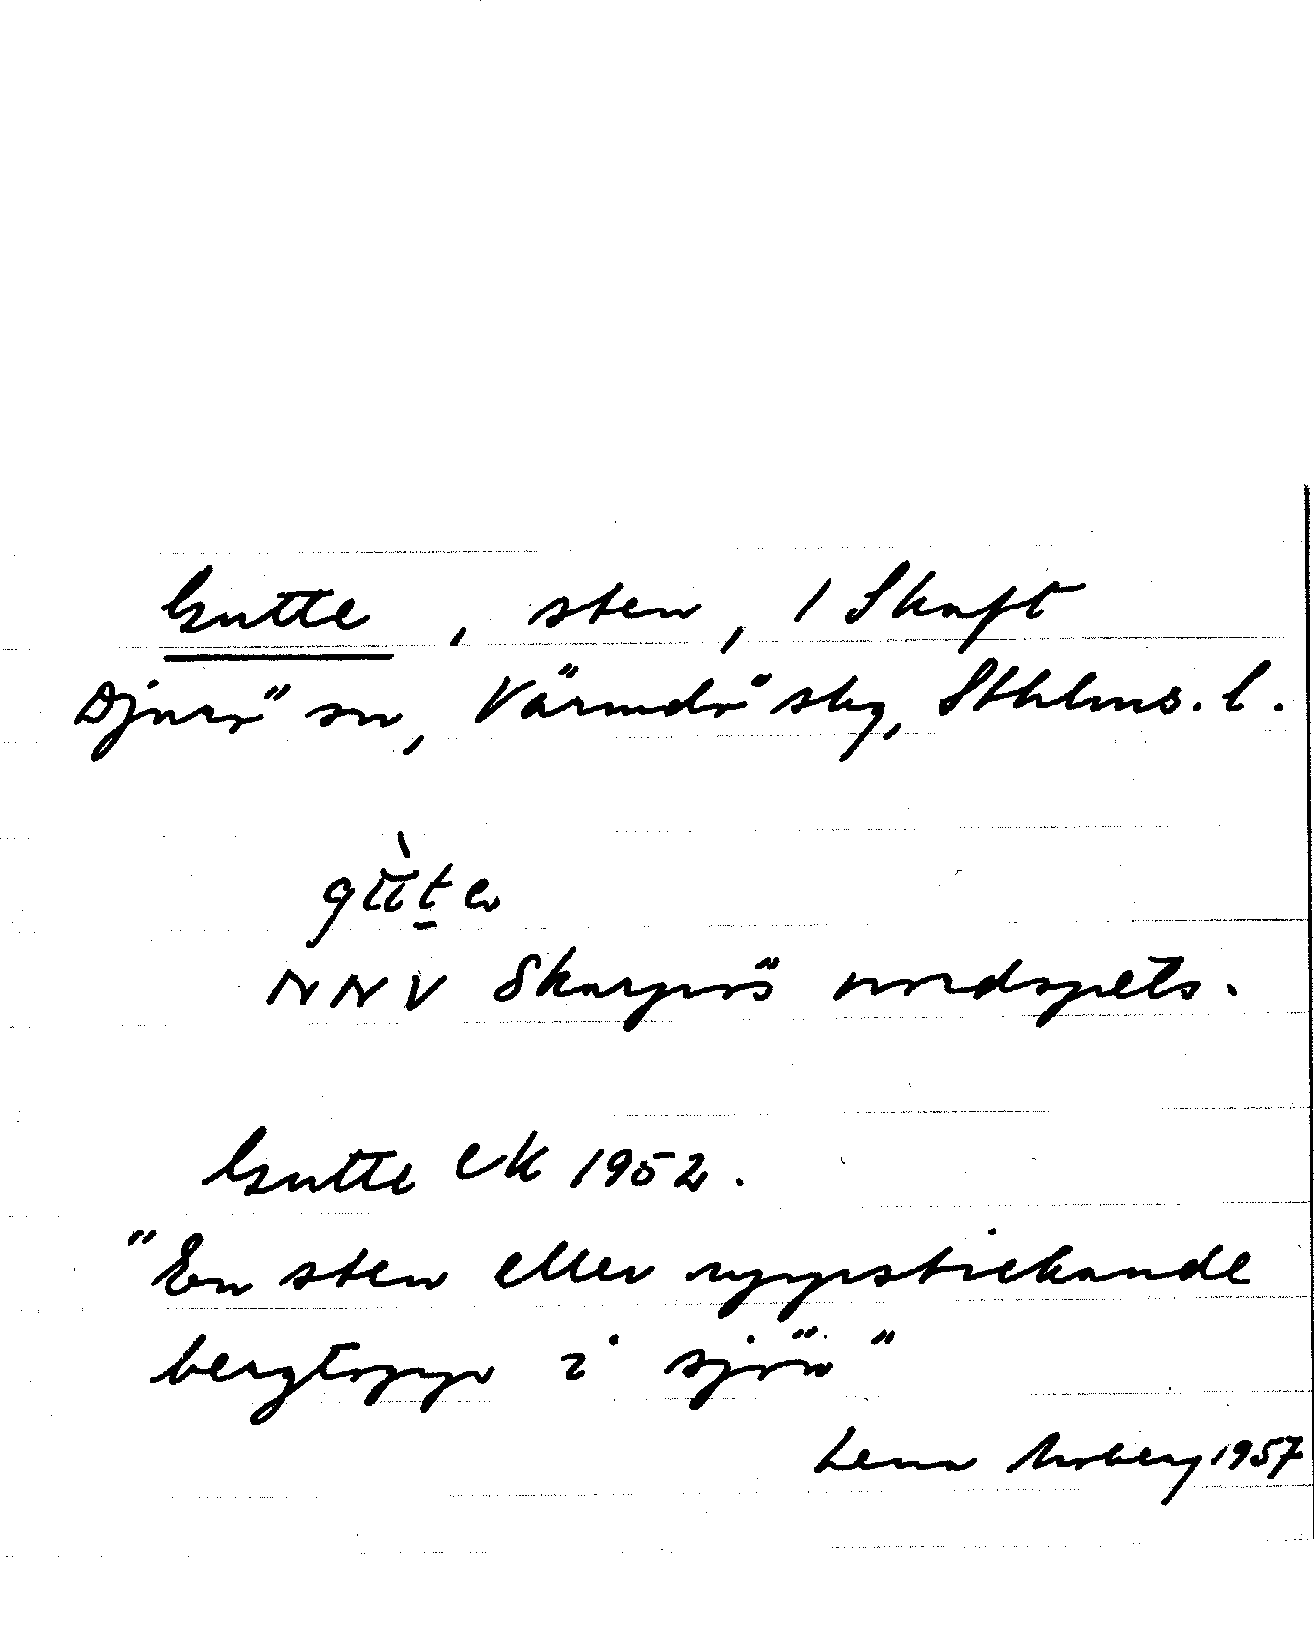 Gutte, sten, 1 Skaft
Djurö sn, Värmdö skg, Sthlms. l.
NNV Skarpös nordspets.
Gutte EK 1952.
"En sten eller uppstickande
bergtopp i sjön"
Lena Moberg 1957